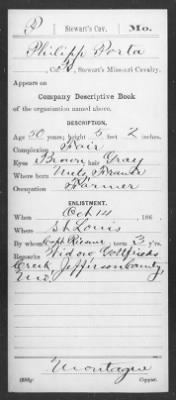 P Stewart's Cav. Mo.
Philipp Porta
, Co. , Stewart's Missouri Cavalry.
Appears on
Company Descriptive Book
of the organization named above.
DESCRIPTION.
Age 50 years; height 5 feet 2 inches.
Complexion Fair
Eyes Brown; hair Gray
Where born France
Occupation Farmer
ENLISTMENT.
When Oct 14, 186
Where St Louis
By whom Capt ; term 3 y'rs.
Remarks: Widow
Creek Jefferson County
Mo
Montague
Copyist.